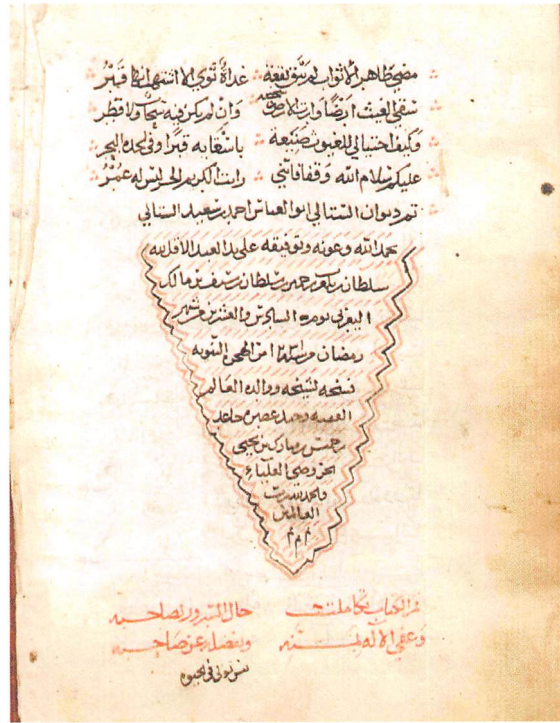 مضى طاهر الأثواب لم تبق بقعة غداة ثوى الا اشتهت انها قبر
سقى الغيث ارضا وارت الارض شخصه وان لم يكن فيه سحاب ولا قطر
وكيف احتيالي للغيوث صنيعة باسقائه قبرا وفي لحده البحر
عليكم سلام الله وقفا فانني رايت الكريم الحر ليس له عمر
تم ديوان الستالي ابو العباس احمد بن سعيد الستالي
بحمد الله وعونه وتوفيقه على يد العبد الاقل لله
سلطان بن سلطان بن سيف بن مالك
اليعربي يومه السادس والعشرين من شهر
رمضان من الهجرة النبويه
نسخه لشيخه ووالده العالم
عصره خاعد
بن خميس بن مبارك بن يحيى
العلياء
والحمد لله رب
العالمين
م م م
تم الكتاب تكاملت حال السرور لصاحبه
وعفى الاله بمنه وبفضله عن صاحبه